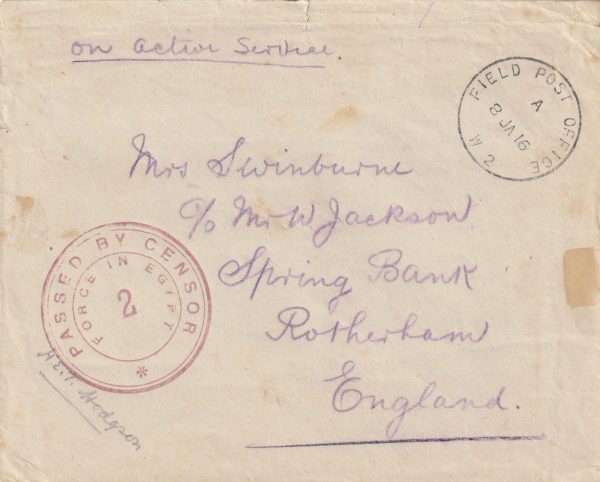 on active Service.
FIELD POST OFFICE
A
8 JA 16
W 2
Mrs Swinburne
c/o Mr W Jackson
Spring Bank
Rotherham
England.
PASSED BY CENSOR
FORCE IN EGYPT
2
*
Hodgson